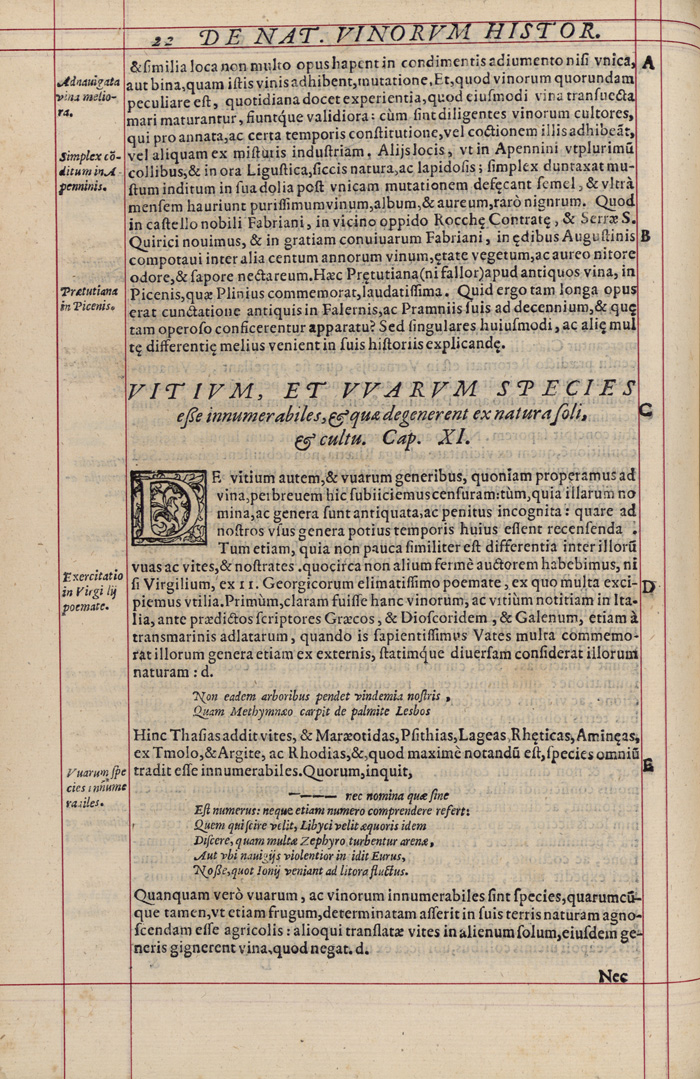 22 DE NAT. VINORVM HISTOR.
& similia loca non multo opus hapent in condimentis adiumento nisi vnica, A
Adnauigata
vina melio-
ra.
aut bina, quam istis vinis adhibent, mutatione. Et, quod vinorum quorundam
peculiare est, quotidiana docet experientia, quod eiusmodi vina transuecta
mari maturantur, fiuntq́ue validiora: cùm sint diligentes vinorum cultores,
qui pro annata, ac certa temporis constitutione, vel coctionem illis adhibeãt,
Simplex cõ-
ditum in A-
penninis.
vel aliquam ex misturis industriam. Alijs locis, vt in Apennini vtplurimũ
collibus, & in ora Ligustica, siccis natura, ac lapidosis; simplex duntaxat mu-
stum inditum in sua dolia post vnicam mutationem defęcant semel, & vltrà
mensem hauriunt purissimum vinum, album, & aureum, rarò nigrum. Quod
in castello nobili Fabriani, in vicino oppido Rocchę Contratę, & Serræ S.
Quirici nouimus, & in gratiam conuiuarum Fabriani, in ędibus Augustinis B
compotaui inter alia centum annorum vinum, ętate vegetum, ac aureo nitore
odore, & sapore nectareum. Hæc Prętutiana (ni fallor) apud antiquos vina, in
Prætutiana
in Picenis.
Picenis, quæ Plinius commemorat, laudatissima. Quid ergo tam longa opus
erat cunctatione antiquis in Falernis, ac Pramniis suis ad decennium, & quę
tam operoso conficerentur apparatu? Sed singulares huiusmodi, ac alię mul
tę differentię melius venient in suis historiis explicandę.
VITIVM, ET VVARVM SPECIES
esse innumerabiles, & quæ degenerent ex natura soli, C
& cultu. Cap. XI.
DE vitium autem, & vuarum generibus, quoniam properamus ad
vina, per breuem hic subiiciemus censuram: tùm, quia illarum no
mina, ac genera sunt antiquata, ac penitus incognita: quare ad
nostros vsus genera potius temporis huius essent recensenda.
Tum etiam, quia non pauca similiter est differentia inter illorũ
Exercitatio
in Virgilij
poemate.
vuas ac vites, & nostrates. quocirca non alium fermè auctorem habebimus, ni
si Virgilium, ex 11. Georgicorum elimatissimo poemate, ex quo multa exci- D
piemus vtilia. Primùm, claram fuisse hanc vinorum, ac vitiùm notitiam in Ita-
lia, ante prædictos scriptores Græcos, & Dioscoridem, & Galenum, etiam à
transmarinis adlatarum, quando is sapientissimus Vates multa commemo-
rat illorum genera etiam ex externis, statimq́ue diuersam considerat illorum
naturam: d.
Non eadem arboribus pendet vindemia nostris,
Quam Methymnæo carpit de palmite Lesbos
Hinc Thasias addit vites, & Maræotidas, Psithias, Lageas, Rhęticas, Aminęas,
ex Tmolo, & Argite, ac Rhodias, &, quod maximè notandũ est, species omniũ
Vuarum spe
cies innume
rabiles.
tradit esse innumerabiles. Quorum, inquit, E
——— nec nomina quæ sine
Est numerus: neque etiam numero comprendere refert:
Quem qui scire velit, Libyci velit æquoris idem
Discere, quam multæ Zephyro turbentur arenæ,
Aut vbi nauigijs violentior in idit Eurus,
Nosse, quot Ionij veniant ad litora fluctus.
Quanquam verò vuarum, ac vinorum innumerabiles sint species, quarumcũ-
que tamen, vt etiam frugum, determinatam asserit in suis terris naturam agno-
scendam esse agricolis: alioqui translatæ vites in alienum solum, eiusdem ge-
neris gignerent vina, quod negat. d.
Nec